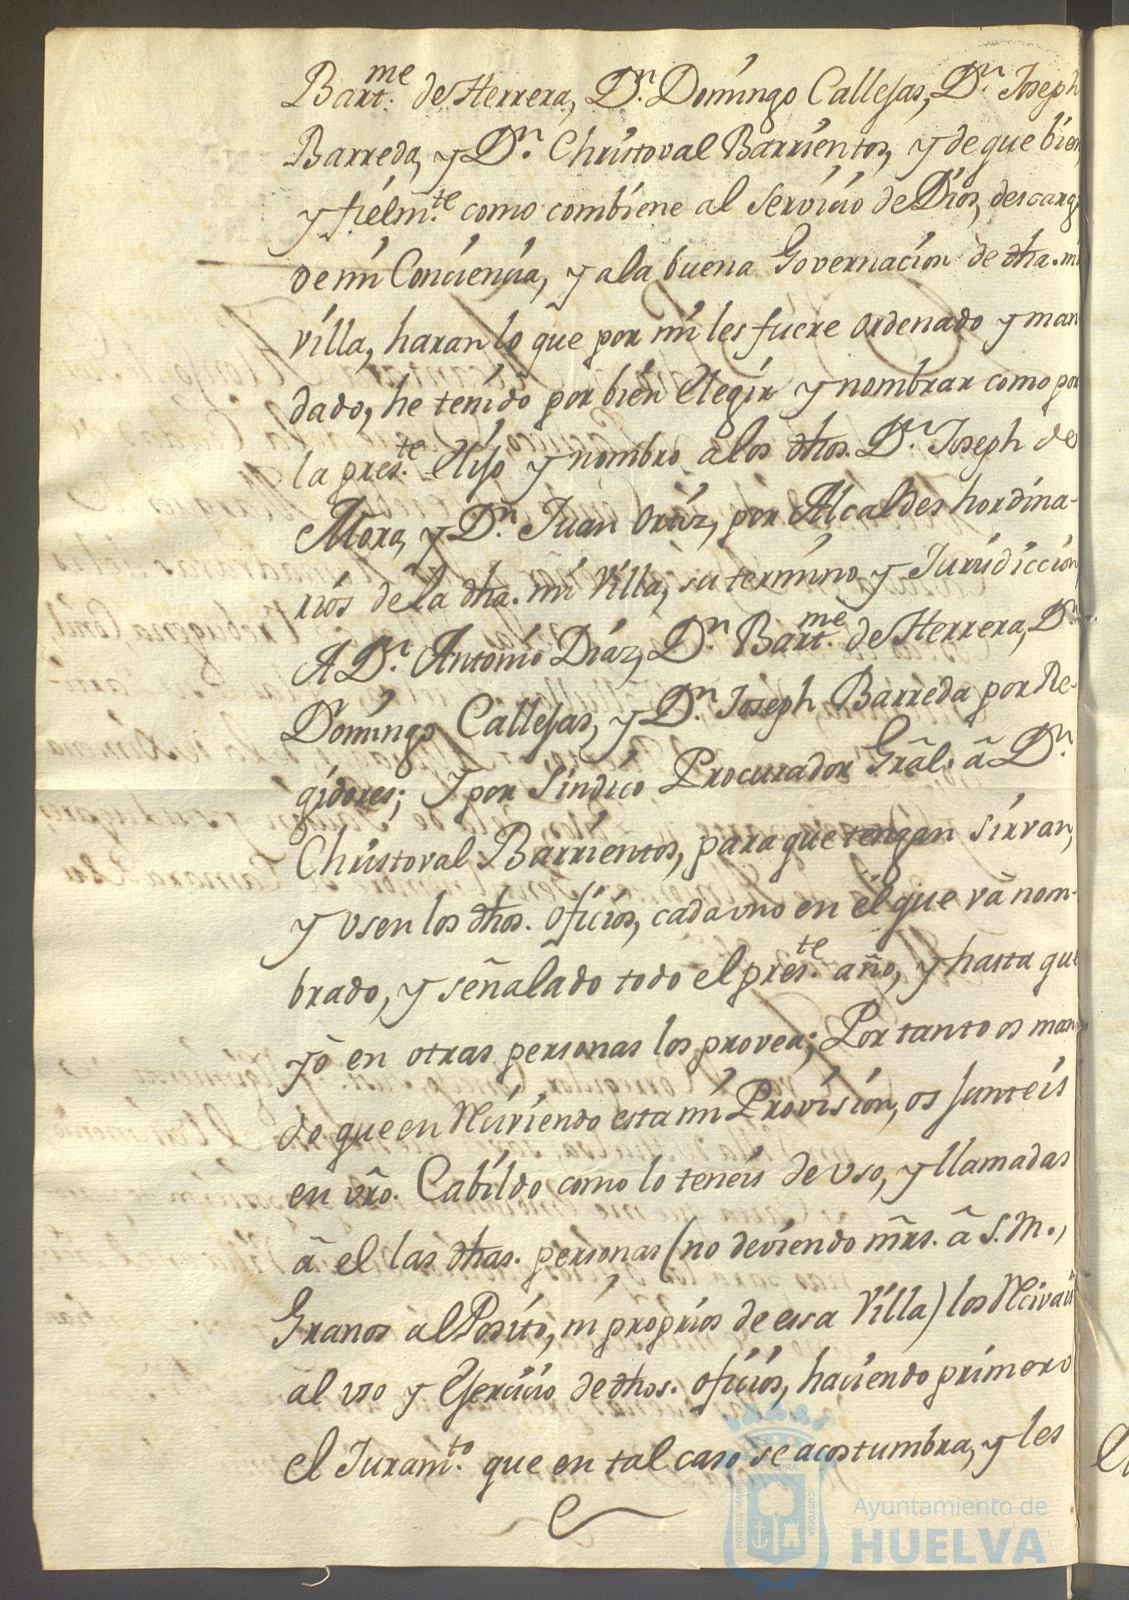 Bart.me de Herrera, D.n Domingo Callejas, D.n Joseph
Barreda, y D.n Christoval Barrientos, y de que bien
y fielm.te como combiene al servicio de Dios, descargo
de mi Conciencia, y a la buena Governacion de dha. mi
villa, haran lo que por mi les fuere ordenado y man
dado, he tenido por bien elegir y nombrar como por
la pres.te elijo y nombro a los dhos. D.n Joseph de
Mora, y D.n Juan Ortiz, por Alcaldes hordina-
rios de la dha. mi Villa, su termino y Jurisdiccion
A D.n Antonio Diaz, D.n Bart.me de Herrera, D.n
Domingo Callejas, y D.n Joseph Barreda por Re-
gidores; y por Sindico Procurador Grãl. â D.n
Christoval Barrientos, para que tengan sirvan,
y usen los dhos. oficios, cada uno en él que vâ nom-
brado, y señalado todo el pres.te año, y hasta que
yô en otras personas los provea; Por tanto os man
do que en Reciviendo esta mi Provision, os junteis
en vrõ. Cabildo como lo teneis de uso, y llamadas
â el las dhas. personas (no deviendo mrs̃. â S. M.,
Granos al Posito, ni proprios de essa Villa) los Recivais
âl uso y Exercicio de dhos. oficios, haciendo primero
el Juram.to que en tal caso se acostumbra, y les
PORTUS MARIS
ET TERRAE
CUSTODIA
Ayuntamiento de
HUELVA